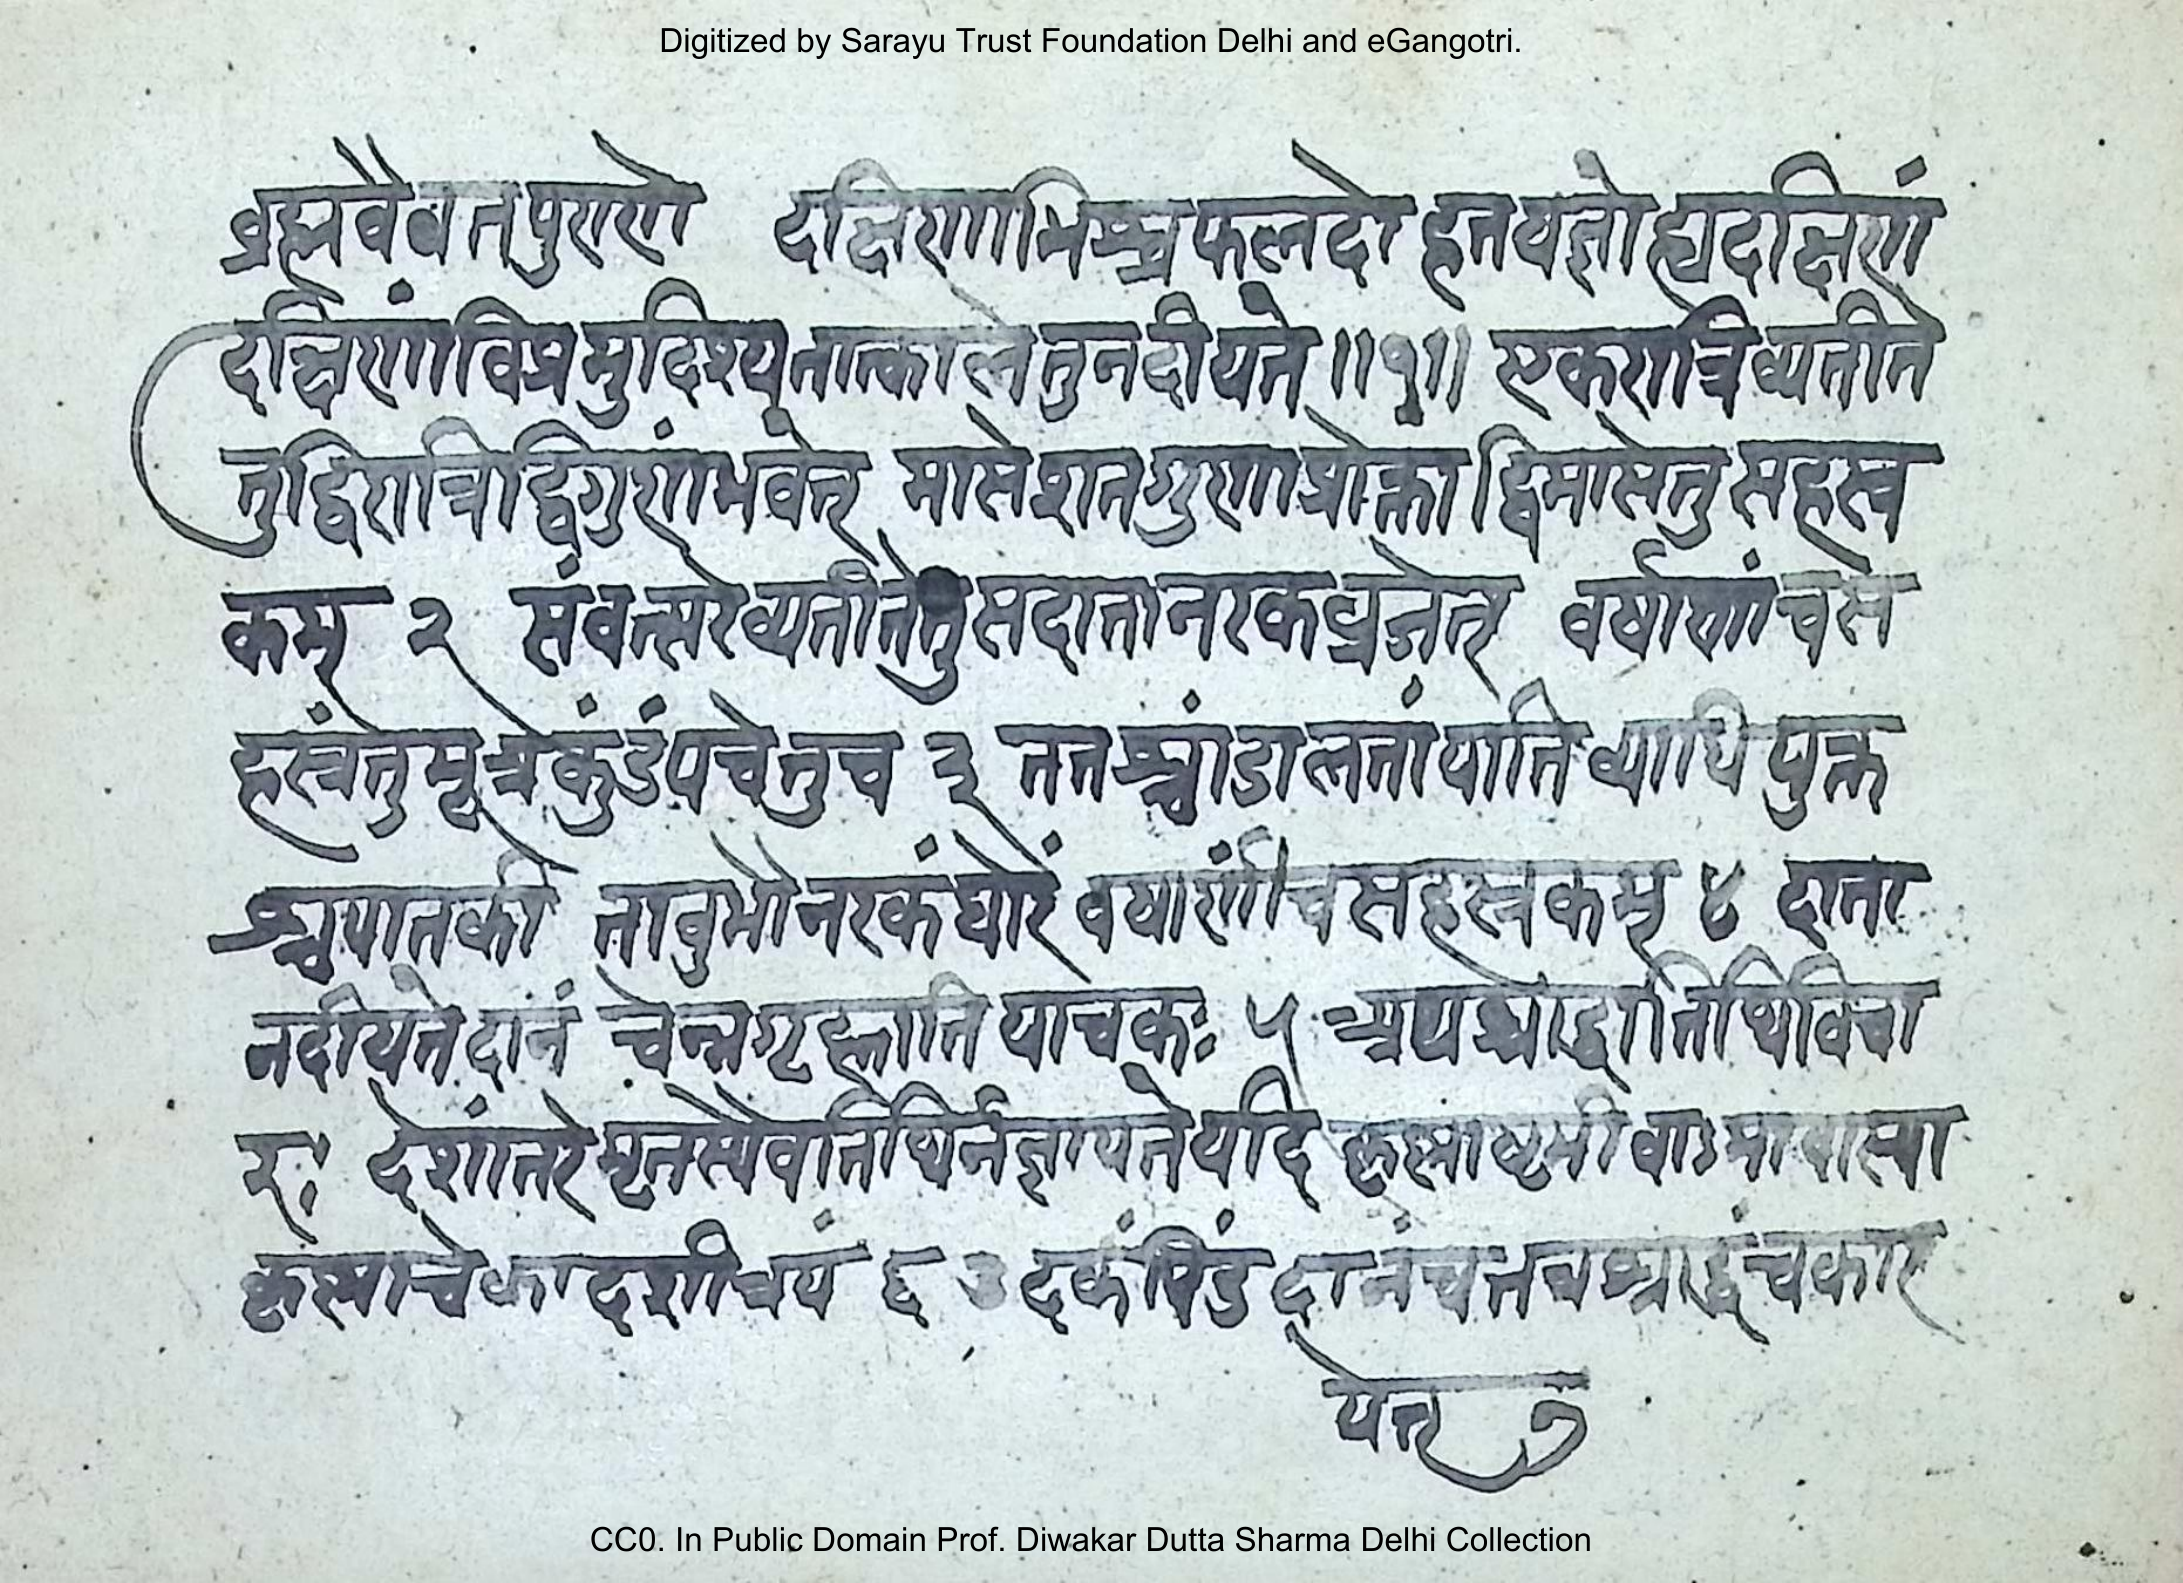 Digitized by Sarayu Trust Foundation Delhi and eGangotri.
ब्रह्मवैवर्तपुराणे दक्षिणाभिश्च फलदो हतयज्ञो ह्यदक्षिणां
दक्षिणां विप्रमुदिश्य तात्काले तु न दीयते ॥१॥ एकरात्रि व्यतीते
तु द्विरात्रि द्विगुणं भवेत् मासे शतगुणा प्रोक्ता द्विमासे तु सहस्त्र
कम् २ संवत्सरे व्यतीते तु स दाता नरक व्रजेत् वर्षाणां च स
हस्त्रं तु मूत्रे कुंडं पचे तु च ३ ततश्चांडालतां याति व्याधि युक्त
श्च पातकी तावुभौ नरकं घोरं वर्षाणां च सहस्त्रकम् ४ दाता
न दीयते दानं चेन्न गृह्णाति याचकः ५ अथ श्राद्धतिथिविचा
रः देशांतरे मृतस्यैव तिथिर्न ज्ञायते यदि कृष्णाष्टमी वाऽमावास्या
कृष्णा चेकादशी चयं ६ उदकं पिंड दानं च तत्र श्राद्धं च कार
येत् ७
CC0. In Public Domain Prof. Diwakar Dutta Sharma Delhi Collection